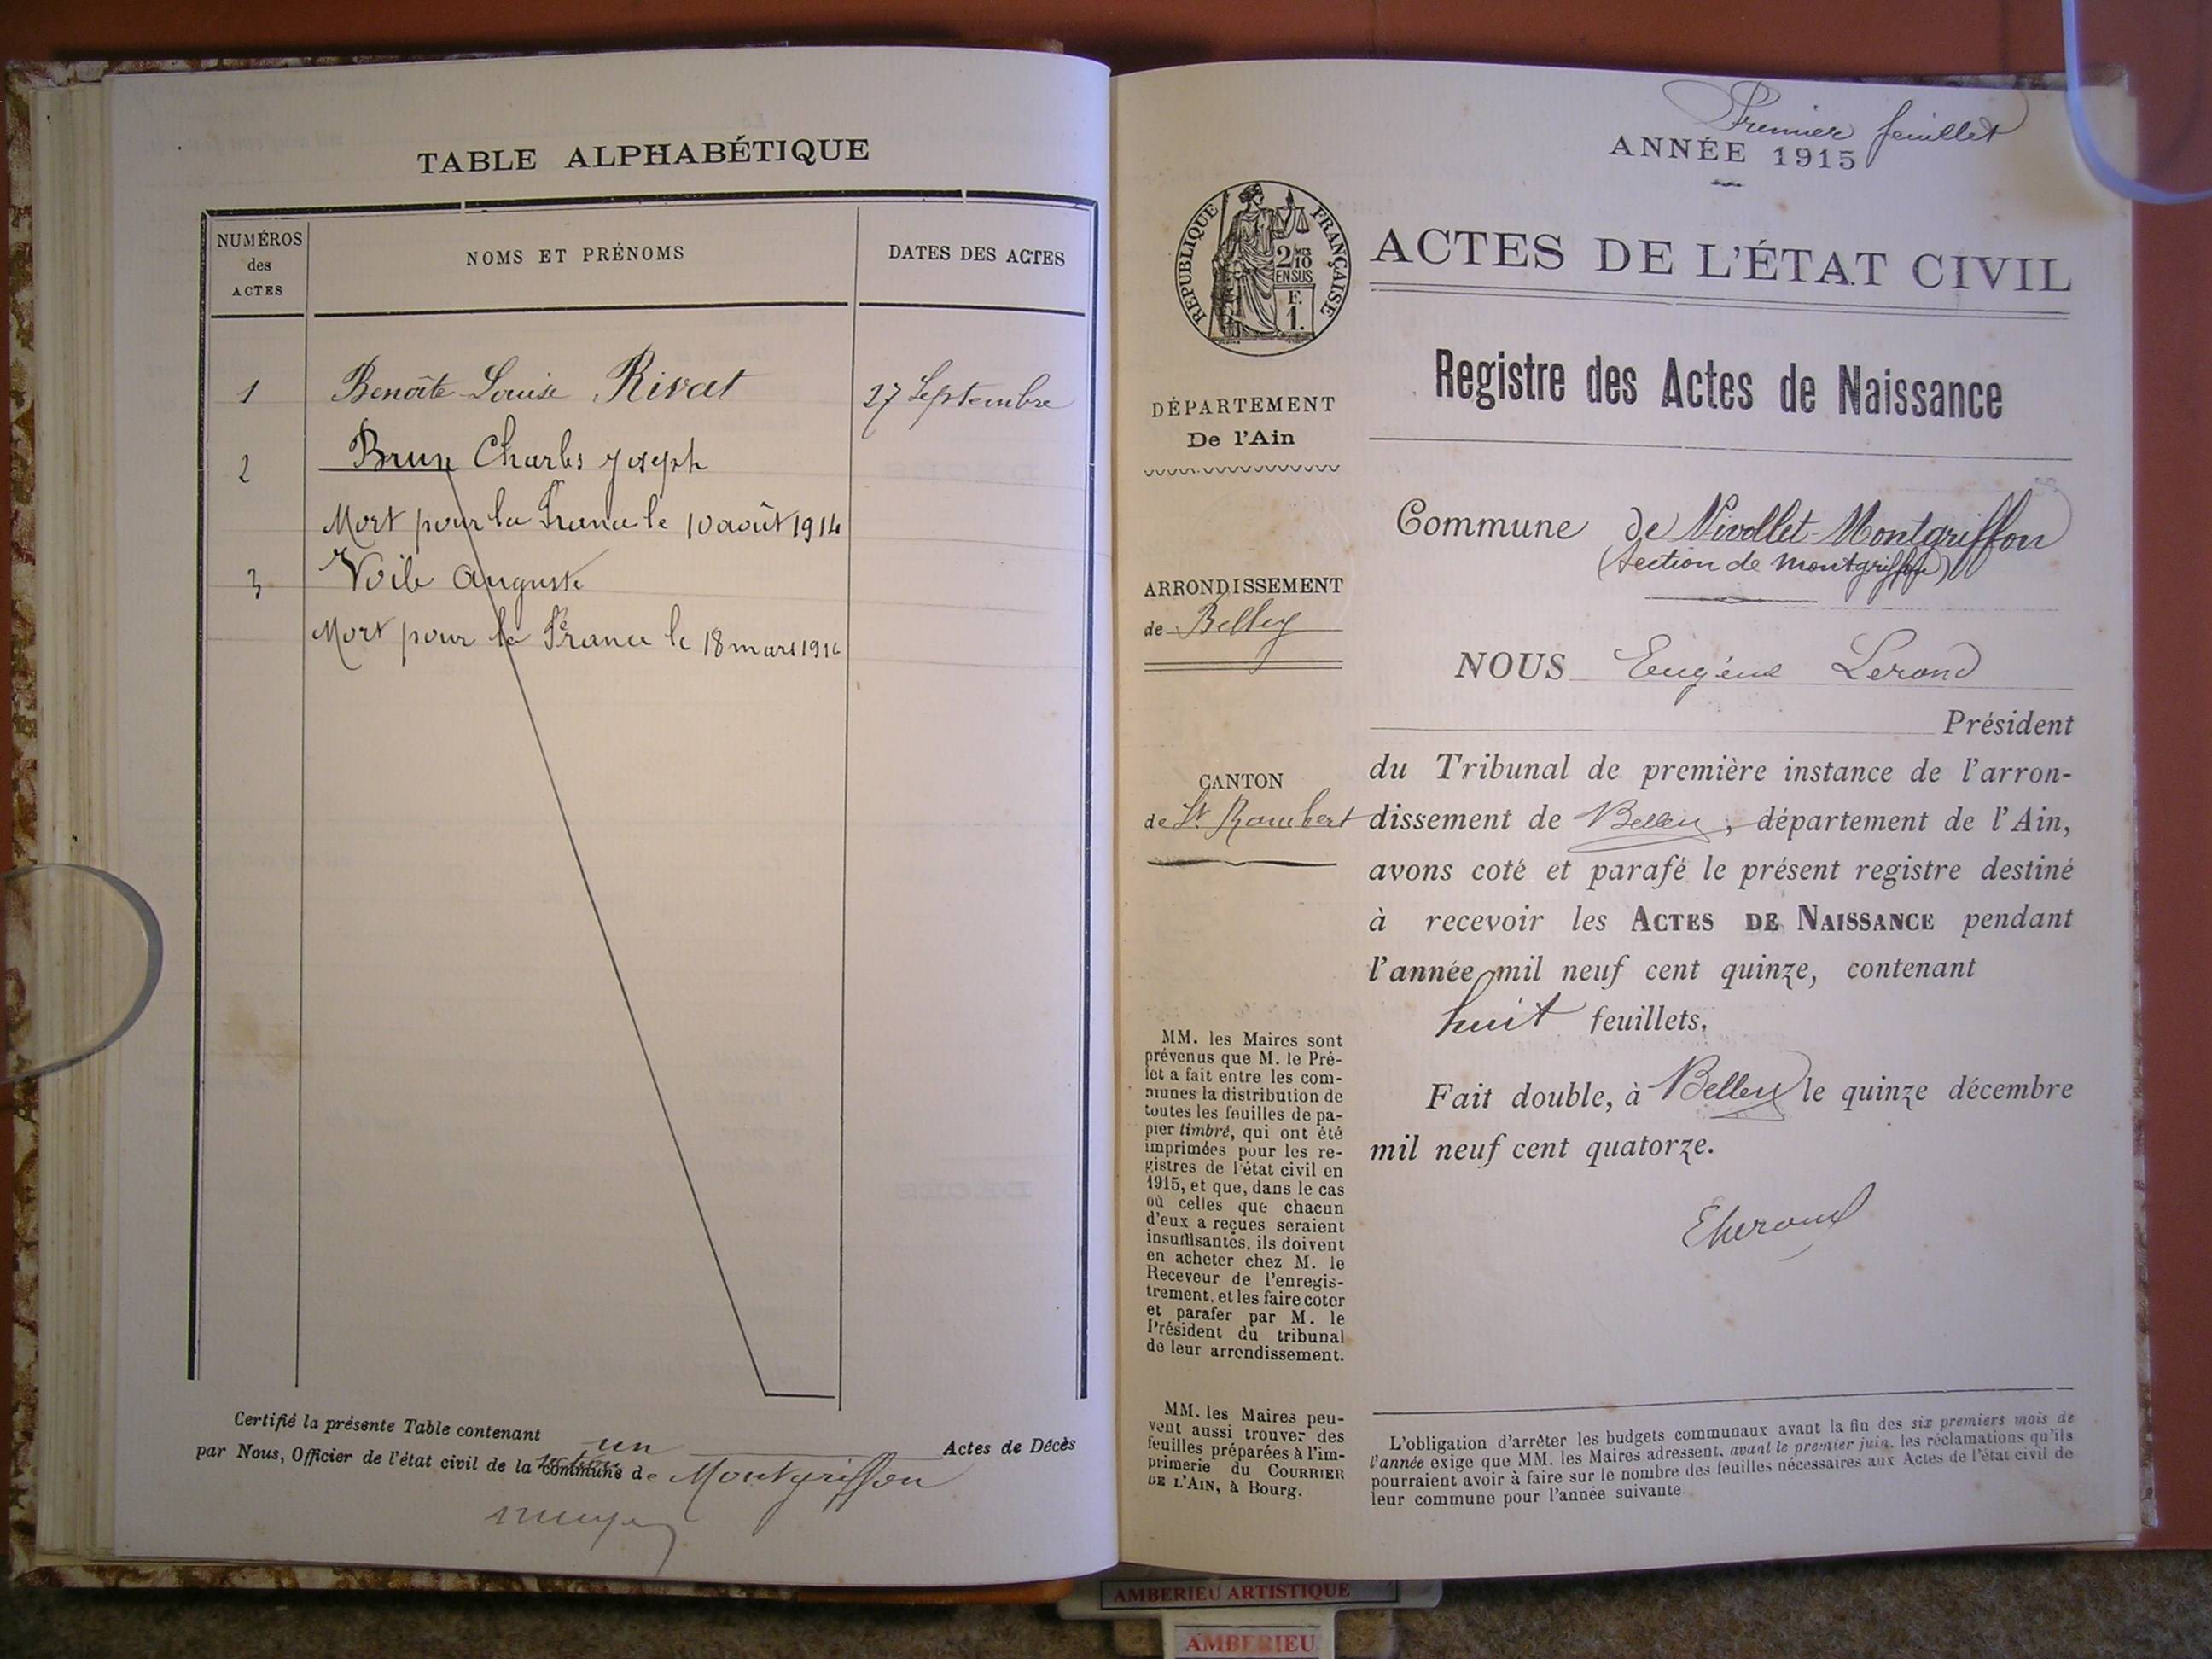 TABLE ALPHABÉTIQUE
NUMÉROS
des
ACTES
NOMS ET PRÉNOMS
DATES DES ACTES
1 Benoîte Louise Rivat 27 Septembre
2 Brun Charles Joseph
Mort pour la France le 10 août 1914
3 Voile Auguste
Mort pour la France le 18 mars 191
Certifié la présente Table contenant un Actes de Décès
par Nous, Officier de l'état civil de la commune de Montgriffon
Premier feuillet
ANNÉE 1915
RÉPUBLIQUE FRANÇAISE
2/10
EN SUS
F.
1.
ACTES DE L'ÉTAT CIVIL
Registre des Actes de Naissance
DÉPARTEMENT
De l'Ain
ARRONDISSEMENT
de Belley
CANTON
de St Rambert
MM. les Maires sont
prévenus que M. le Pré-
fet a fait entre les com-
munes la distribution de
toutes les feuilles de pa-
pier timbré, qui ont été
imprimées pour les re-
gistres de l'état civil en
1915, et que, dans le cas
où celles que chacun
d'eux a reçues seraient
insuffisantes, ils doivent
en acheter chez M. le
Receveur de l'enregis-
trement, et les faire coter
et parafer par M. le
Président du tribunal
de leur arrondissement.
MM. les Maires peu-
vent aussi trouver des
feuilles préparées à l'im-
primerie du COURRIER
DE L'AIN, à Bourg.
Commune de Nivollet-Montgriffon
(Section de Montgriffon)
NOUS Eugène Lerond
Président
du Tribunal de première instance de l'arron-
dissement de Belley, département de l'Ain,
avons coté et parafé le présent registre destiné
à recevoir les ACTES DE NAISSANCE pendant
l'année mil neuf cent quinze, contenant
huit feuillets.
Fait double, à Belley le quinze décembre
mil neuf cent quatorze.
L'obligation d'arrêter les budgets communaux avant la fin des six premiers mois de
l'année exige que MM. les Maires adressent, avant le premier juin, les réclamations qu'ils
pourraient avoir à faire sur le nombre des feuilles nécessaires aux Actes de l'état civil de
leur commune pour l'année suivante
AMBERIEU ARTISTIQUE
AMBERIEU